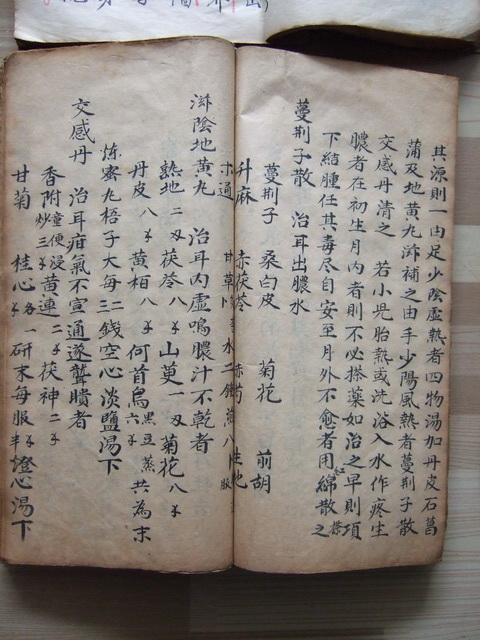 其源則一由足少陰虛熱者四物湯加丹皮石菖
蒲及地黃九滋補之由手少陽風熱者蔓荆子散
交感丹清之 若小児胎熱或洗浴入水作疼生
膿者在初生月內者則不必搽薬如治之早則項
下結腫任其毒尽自安至月外不愈者用綿散搽之
蔓荆子散 治耳出膿水
蔓荆子 桑白皮 菊花 前胡
升麻 赤茯苓 生地
木通 甘草 水二鍾煎八 服
滋陰地黃九 治耳內虛鳴膿汁不乾者
熟地二 茯苓八 山萸一 菊花八
丹皮八 黃栢八 何首烏六 黒豆蒸 共為末
炼蜜九梧子大每二三錢空心淡鹽湯下
交感丹 治耳疳氣不宣通遂聾聵者
香附三 童便浸炒 黃連二 茯神二
甘菊 桂心各一 研末每服半 燈心湯下